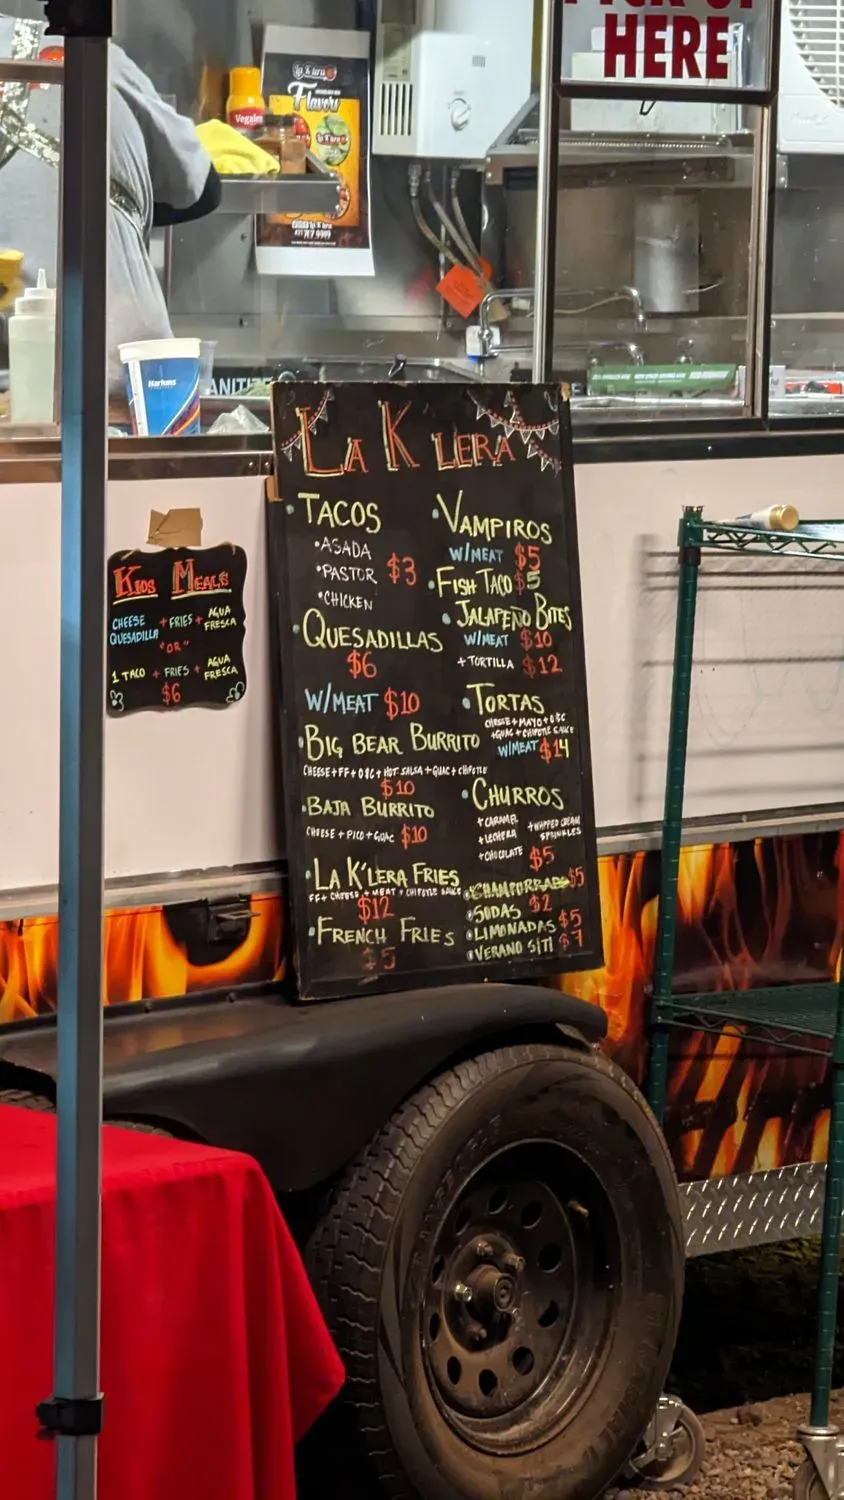 PICK UP
HERE
La K'lera
Flavors
Vegalet
Harkins
SANITIZE
LA K'LERA
• TACOS
• ASADA
• PASTOR $3
• CHICKEN
• QUESADILLAS
$6
W/MEAT $10
• BIG BEAR BURRITO
CHEESE+FF+O&C+HOT SALSA+GUAC+CHIPOTLE
$10
• BAJA BURRITO
CHEESE + PICO + GUAC $10
• LA K'LERA FRIES
FF + CHEESE + MEAT + CHIPOTLE SAUCE
$12
• FRENCH FRIES
$5
• VAMPIROS
W/MEAT $5
• FISH TACO $5
• JALAPEÑO BITES
W/MEAT $10
+ TORTILLA $12
• TORTAS
CHEESE+MAYO+O&C
+GUAC+CHIPOTLE SAUCE
W/MEAT $14
• CHURROS
+ CARAMEL
+ LECHERA
+ CHOCOLATE
+ WHIPPED CREAM
SPRINKLES
$5
• CHAMPURRADO $5
• SODAS $2
• LIMONADAS $5
• VERANO S/TI $7
KIDS MEALS
CHEESE QUESADILLA + FRIES + AGUA FRESCA
"OR"
1 TACO + FRIES + AGUA FRESCA
$6